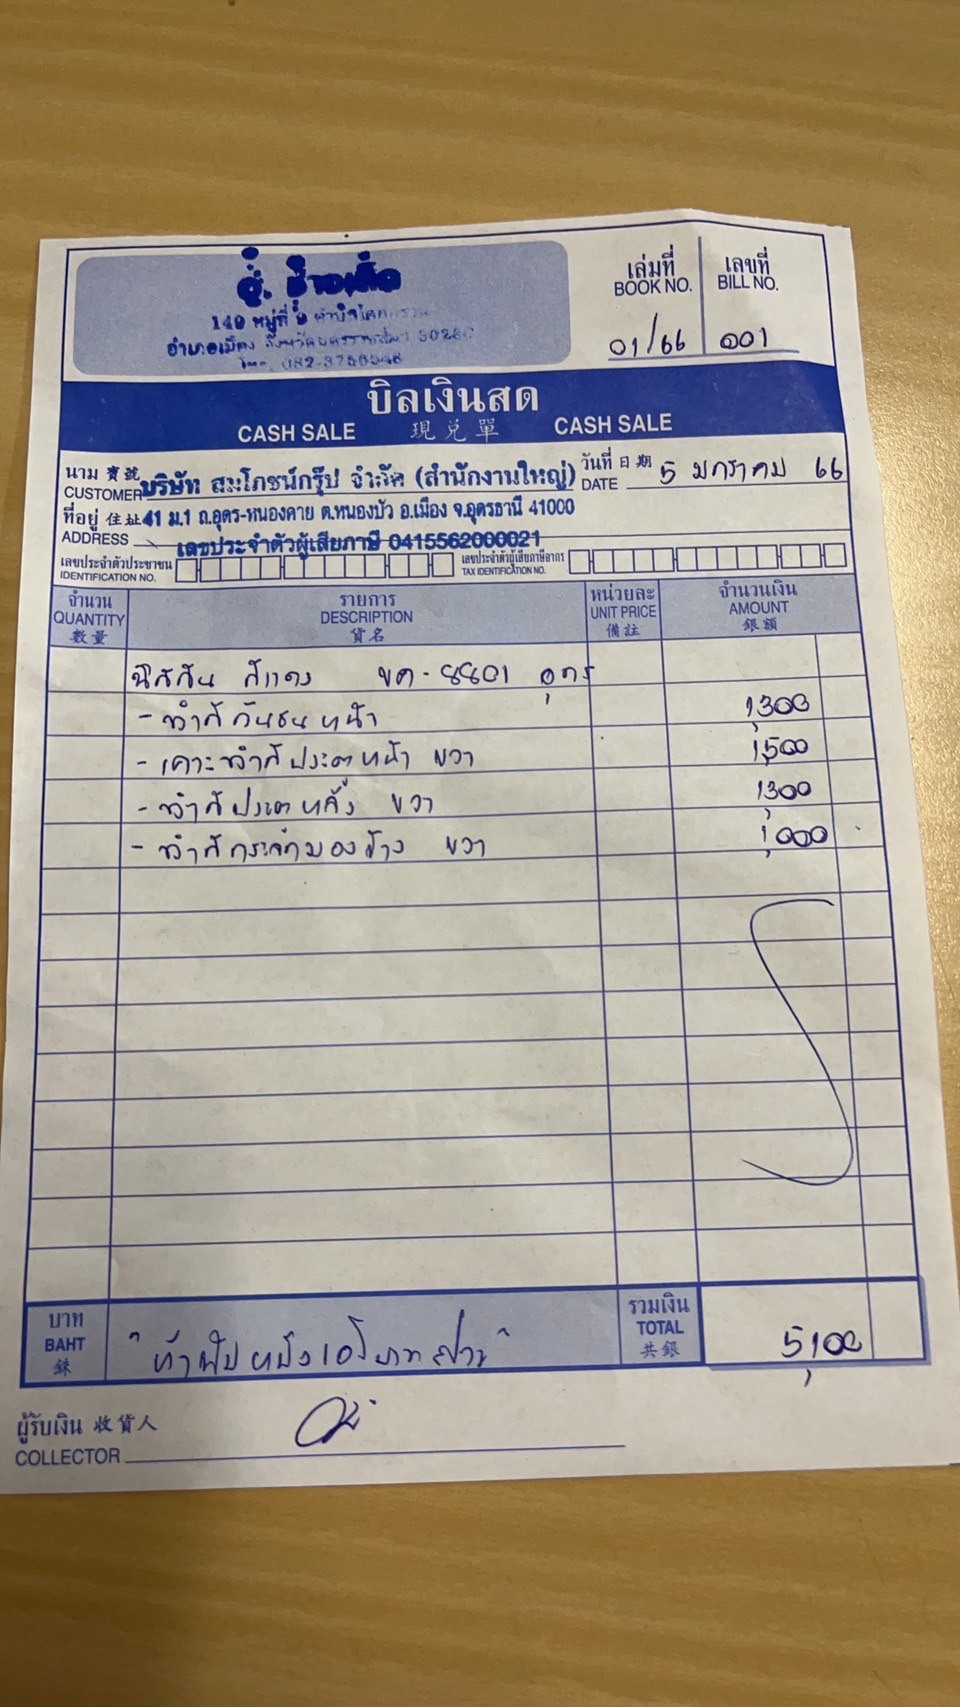 149 หมู่ที่
อำเภอเมือง จังหวัดนครราชสีมา
โทร. 082-3756548
เล่มที่ เลขที่
BOOK NO. BILL NO.
01/66 001
บิลเงินสด
CASH SALE 現兌單 CASH SALE
นาม 寶號 บริษัท สมโภชน์กรุ๊ป จำกัด (สำนักงานใหญ่) วันที่ 日期 5 มกราคม 66
CUSTOMER DATE
ที่อยู่ 住址 41 ม.1 ถ.อุดร-หนองคาย ต.หนองบัว อ.เมือง จ.อุดรธานี 41000
ADDRESS เลขประจำตัวผู้เสียภาษี 0415562000021
เลขประจำตัวประชาชน เลขประจำตัวผู้เสียภาษีอากร
IDENTIFICATION NO. TAX IDENTIFICATION NO.
จำนวน รายการ หน่วยละ จำนวนเงิน
QUANTITY DESCRIPTION UNIT PRICE AMOUNT
數量 貨名 備註 銀額
นิสสัน สีแดง ขต-8801 อุดร
- ทำสีกันชนหน้า 1,300
- เคาะทำสีประตูหน้า ขวา 1,500
- ทำสีประตูหลัง ขวา 1,300
- ทำสีกระจกมองข้าง ขวา 1,000
บาท รวมเงิน
BAHT ห้าพันหนึ่งร้อยบาทถ้วน TOTAL 5,100
銖 共銀
ผู้รับเงิน 收貨人
COLLECTOR